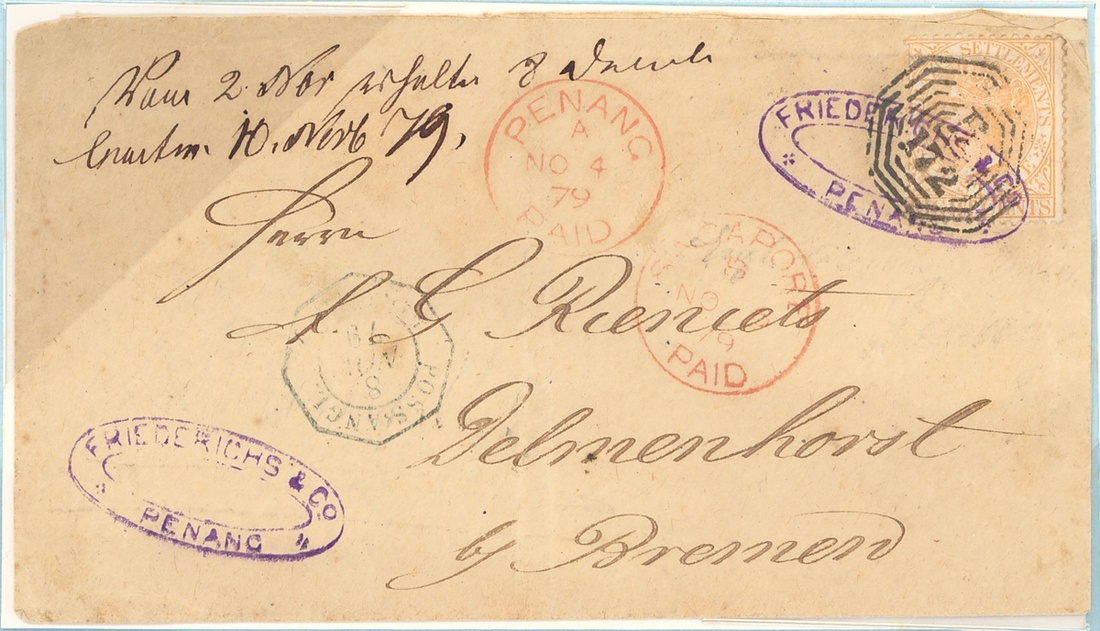 Vom 2. Nov erhalten 8 
10. Novb 79,
PENANG
A
NO 4
79
PAID
SETTLEMENTS
CENTS
B
172
FRIEDERICHS & CO
PENANG
Herrn
A. G. Rieniets
SINGAPORE
NO
79
PAID
POSS. ANGL.
8
NOV
79
Delmenhorst
by Bremen
FRIEDERICHS & CO
PENANG